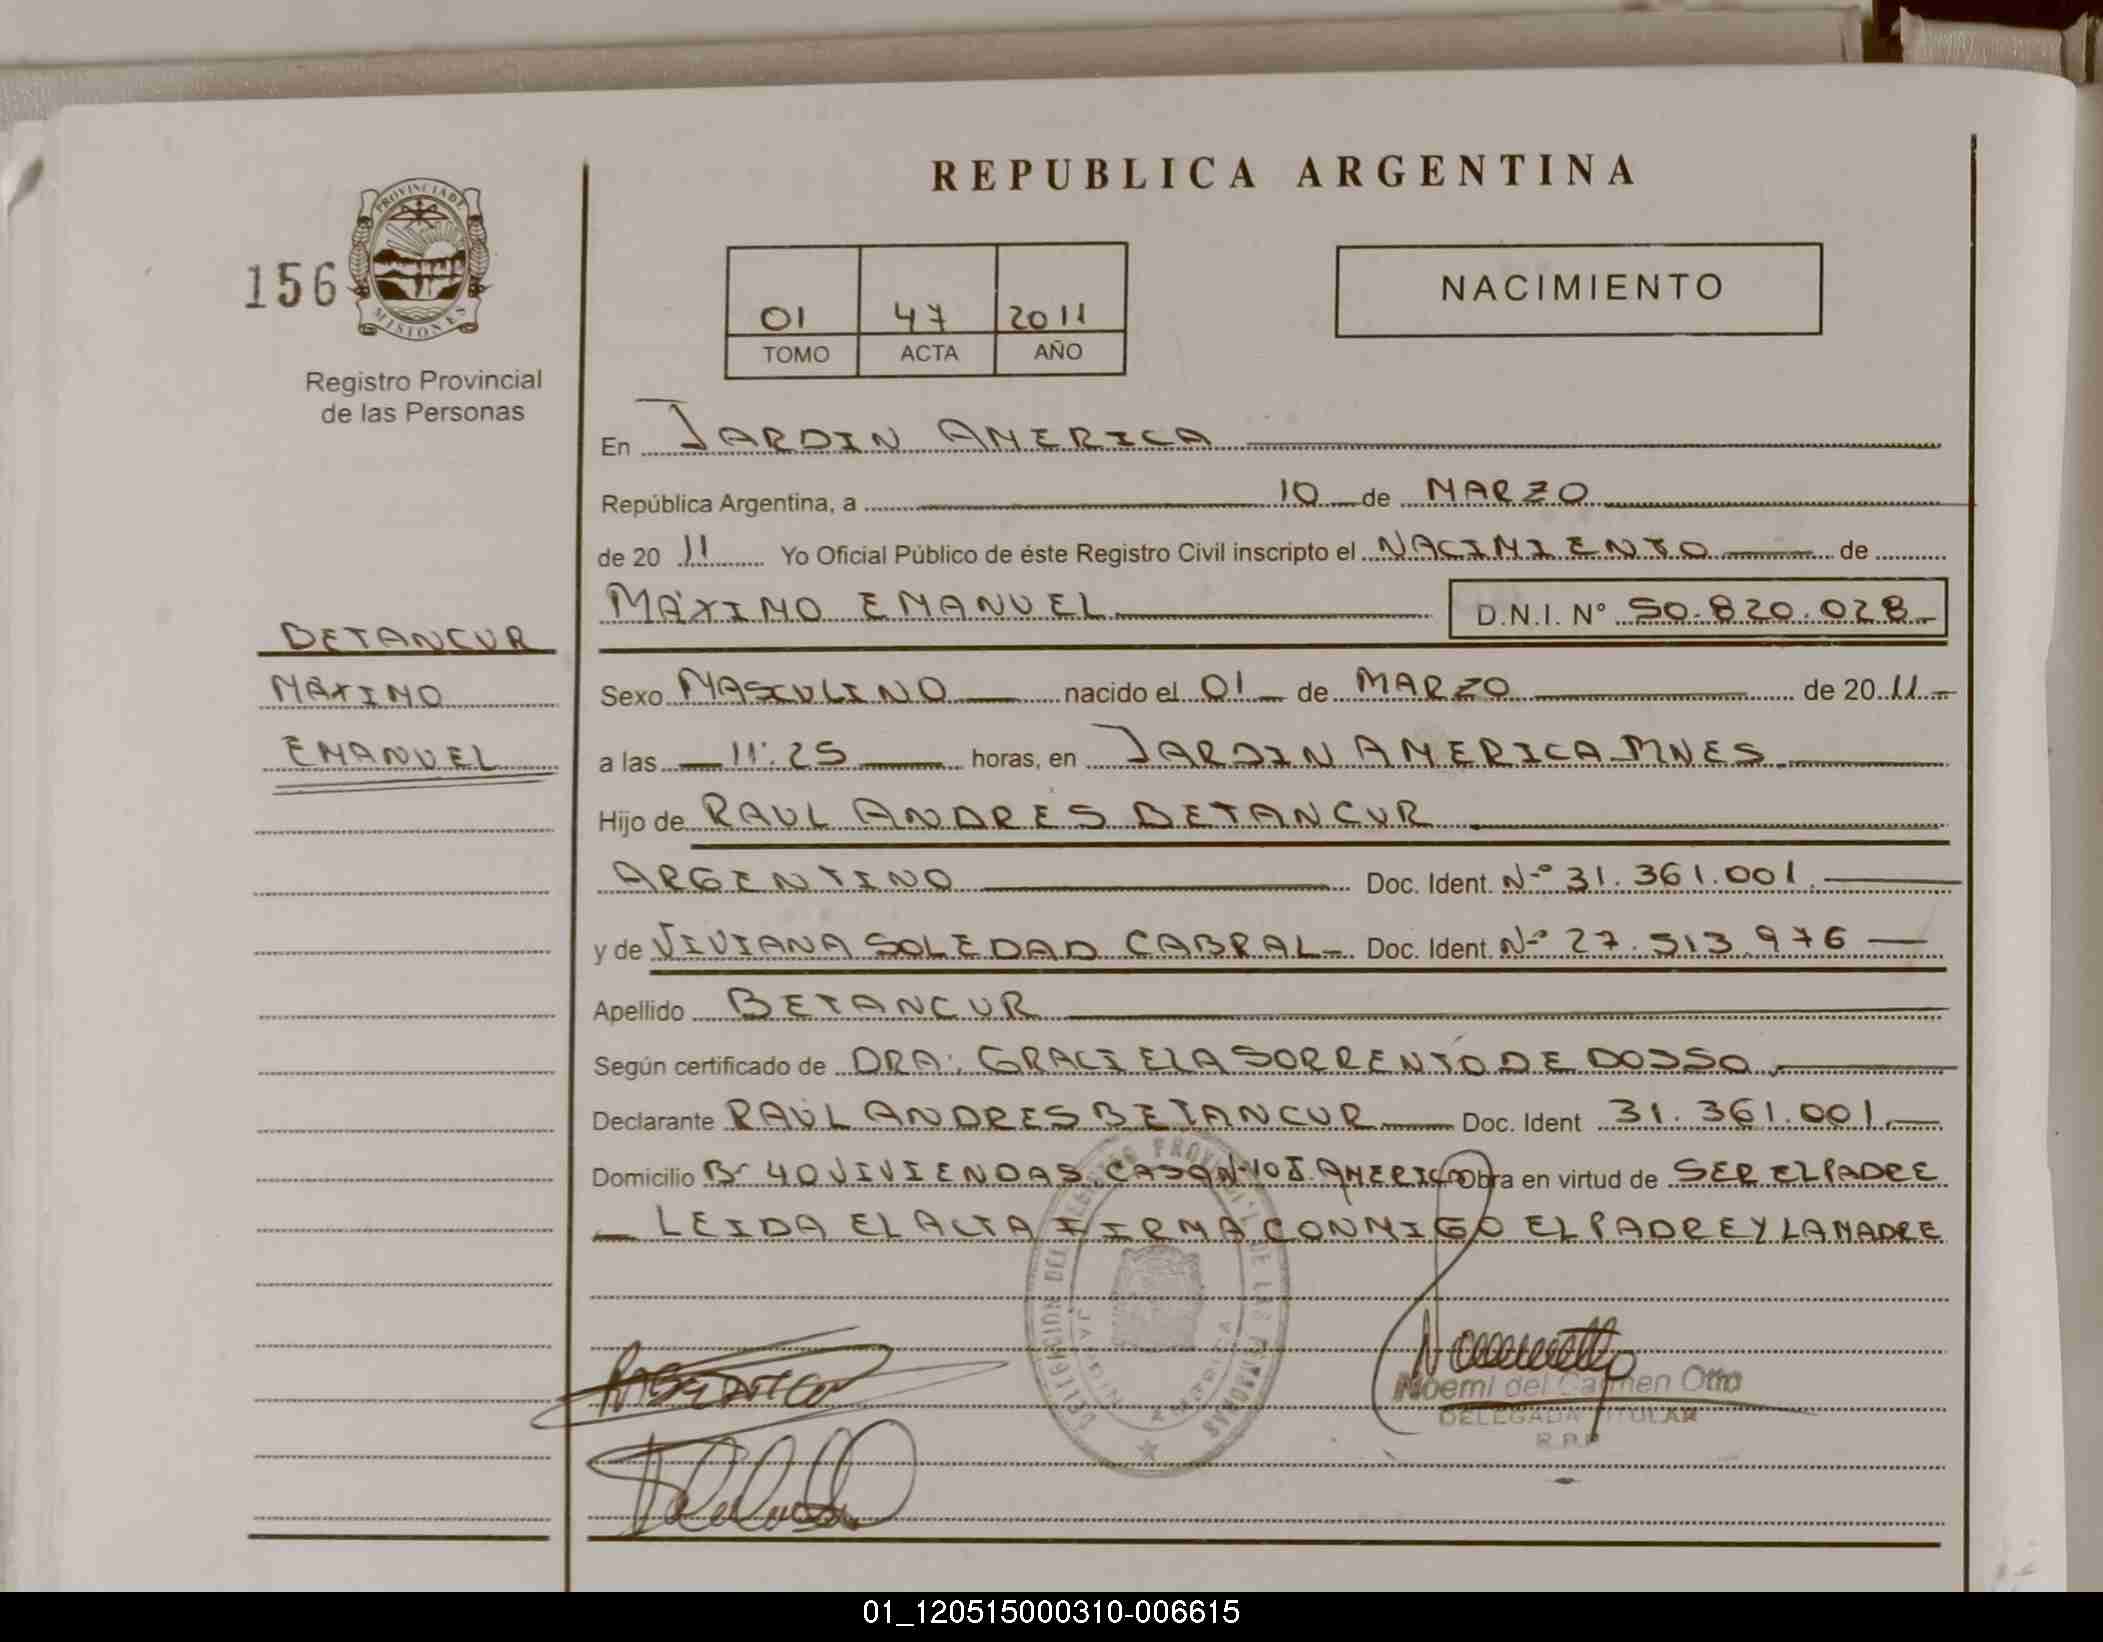 REPUBLICA ARGENTINA
156
PROVINCIA DE
MISIONES
Registro Provincial
de las Personas
01 47 2011
TOMO ACTA AÑO
NACIMIENTO
En JARDIN AMERICA
República Argentina, a 10 de MARZO
de 20 11 Yo Oficial Público de éste Registro Civil inscripto el NACIMIENTO de
MÁXIMO EMANUEL D.N.I. N° 50.820.028
BETANCUR
MÁXIMO
EMANUEL
Sexo MASCULINO nacido el 01 de MARZO de 20 11
a las 11:25 horas, en JARDIN AMERICA MNES.
Hijo de RAUL ANDRES BETANCUR
ARGENTINO Doc. Ident. Nº 31.361.001.
y de VIVIANA SOLEDAD CABRAL Doc. Ident. Nº 27.513.976
Apellido BETANCUR
Según certificado de DRA: GRACIELA SORRENTO DE DOSSO
Declarante RAUL ANDRES BETANCUR Doc. Ident 31.361.001
Domicilio Bº 40 VIVIENDAS CASA Nº 10 J. AMERICA Obra en virtud de SER EL PADRE
LEIDA EL ACTA FIRMA CONMIGO EL PADRE Y LA MADRE
DELEGACION DEL REGISTRO PROVINCIAL DE LAS PERSONAS
JARDIN AMERICA
Noemi del Carmen Otto
DELEGADA TITULAR
R.P.P.
01_120515000310-006615